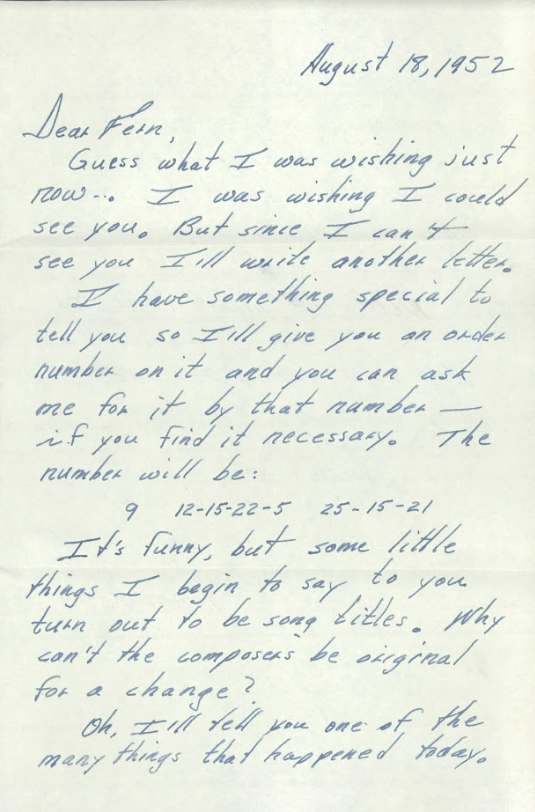 August 18, 1952
Dear Fern,
Guess what I was wishing just
now... I was wishing I could
see you. But since I can't
see you I'll write another letter.
I have something special to
tell you so I'll give you an order
number on it and you can ask
me for it by that number —
if you find it necessary. The
number will be:
9 12-15-22-5 25-15-21
It's funny, but some little
things I begin to say to you
turn out to be song titles. Why
can't the composers be original
for a change?
Oh, I'll tell you one of the
many things that happened today.